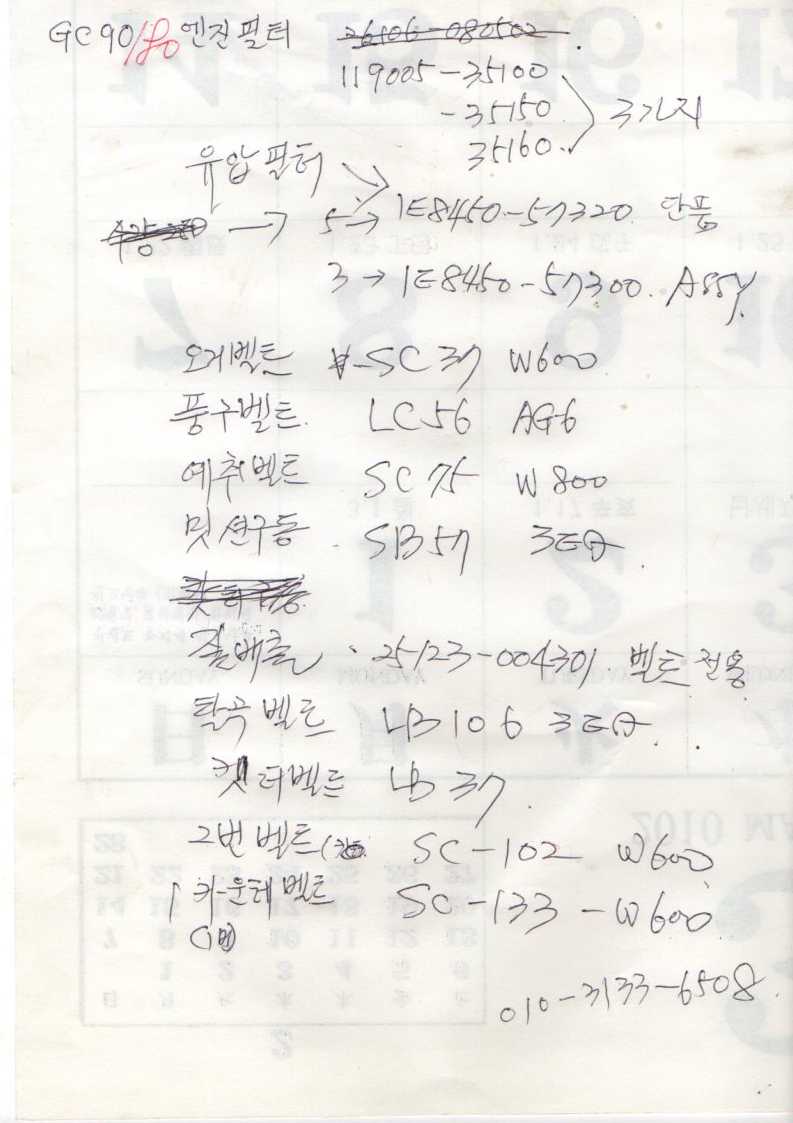 GC90/80 엔진필터 26106-080502
119005-35100
-35150 3가지
35160
유압필터
5→ 1E8450-57320 단품
3 → 1E8450-57300. ASSY
오게벨트 SC37 W600
풍구벨트 LC56 AG6
예취벨트 SC75 W800
밋션구동 SB57 3EA
짚배출 25123-004301 벨트전용
탈곡벨트 LB106 3EA
캣터벨트 LB37
2번벨트 SC-102 W600
카운테벨트 SC-133 -W600
(1번)
010-3133-6508